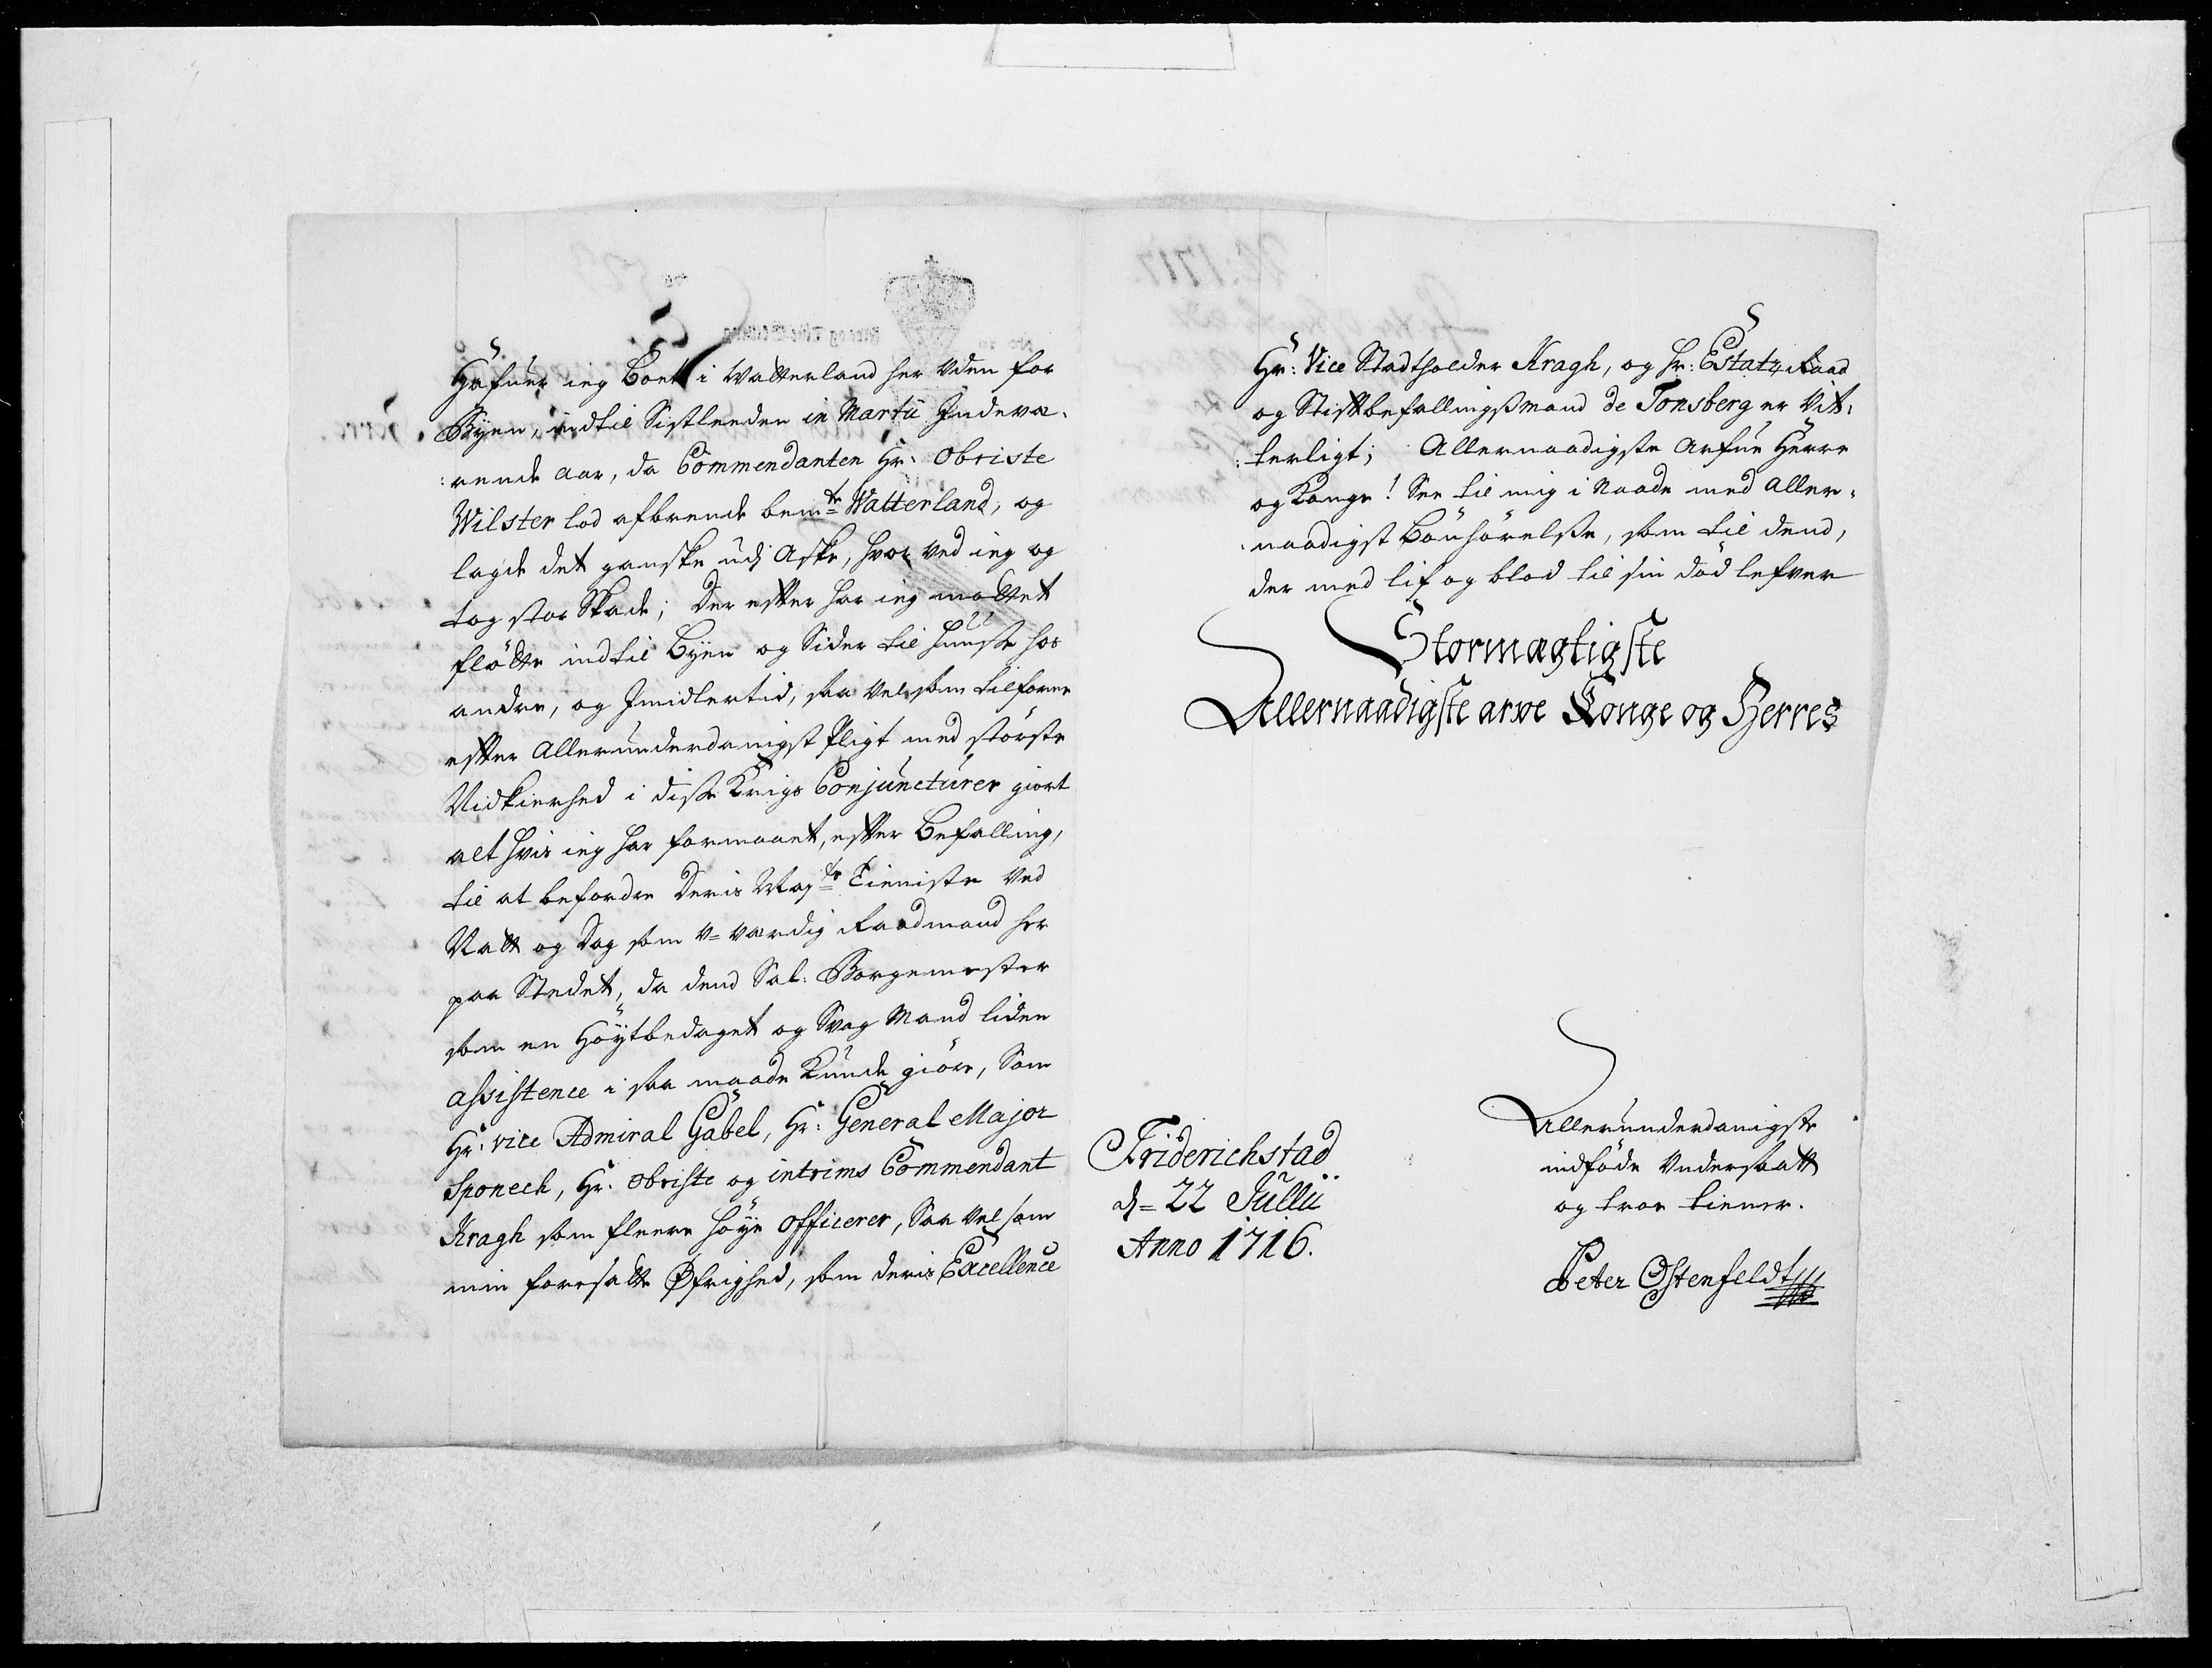 Hafuer ieg Boet i Watterland her Uden for
Byen, indtil Sistleeden in Martii Indevæ¬
:rende aar, da Commendanten Hr: Obriste
Wilster lod afbrende bemte Watterland, og
lagde det ganske udj Aske, hvor ved ieg og
tog stor Skade; Der efter har ieg mottet
flötte ind til Byen og Sider til Huuse hos
andre, og Imidlertid, saa velsom tilforne
efter Allerunderdanigst Pligt med störste
Vidkierhed i disse Krigs Conjuncturer giort
alt hvis ieg har formaaet, efter Befalling,
til at befordre Deris Maj:te Tieniste ved
Natt og Dag som U=værdig Raadmand her
paa Stedet, da dend Sal: Borgemester
som en Höytbedaget og Svag Mand liden
assistence i saa maade Kunde giöre, Som
Hr: vice Admiral Gabel, Hr: General Major
Sponeck, Hr: Obriste og intrims Commendant
Kragh som fleere höye Officerer, Saa vel som
min foresatte Øfrighed, som deris Excellence
Hr: Vice Stadtholder Kragh, og Hr: Estatz Raad
og Stiftbefallingsmand de Tonsberg er Vit¬
:terligt; Allernaadigste Arfue Herre
og Konge! See til mig i Naade med Aller¬
:naadigst Bönhörelse, som til dend,
der med lif og blod til sin död lefver
Stormægtigste
Allernaadigste arve Konge og Herres
Friderichstad
d= 22 Jullii
Anno 1716.
Allerunderdanigste
indföde Undersaatt
og troe tiener.
Peter Ostenfeldt